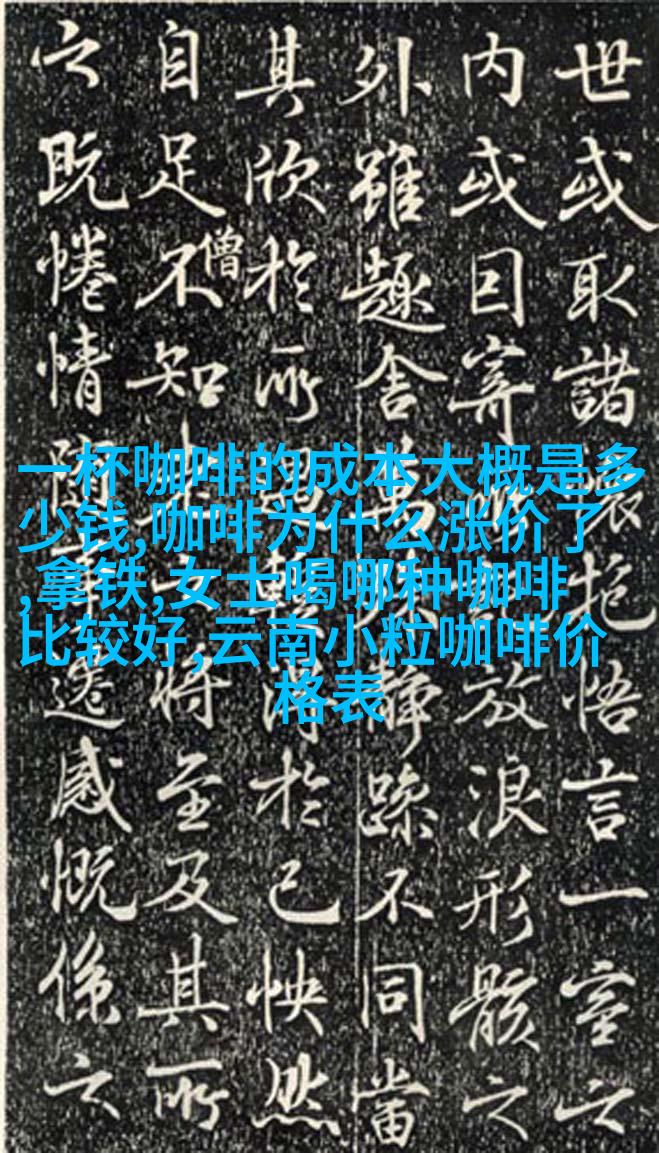 一杯咖啡的成本大概是多
少钱,咖啡为什么涨价了
,拿铁,女士喝哪种咖啡
比较好,云南小粒咖啡价
格表
世或取諸懷抱悟言一室之
内或因寄所放浪形骸之
外雖趣舍萬殊靜躁不同當
其欣於所遇暫得於己怏然
自足不知老之將至及其所
僧
之既惓情隨事遷感慨係之